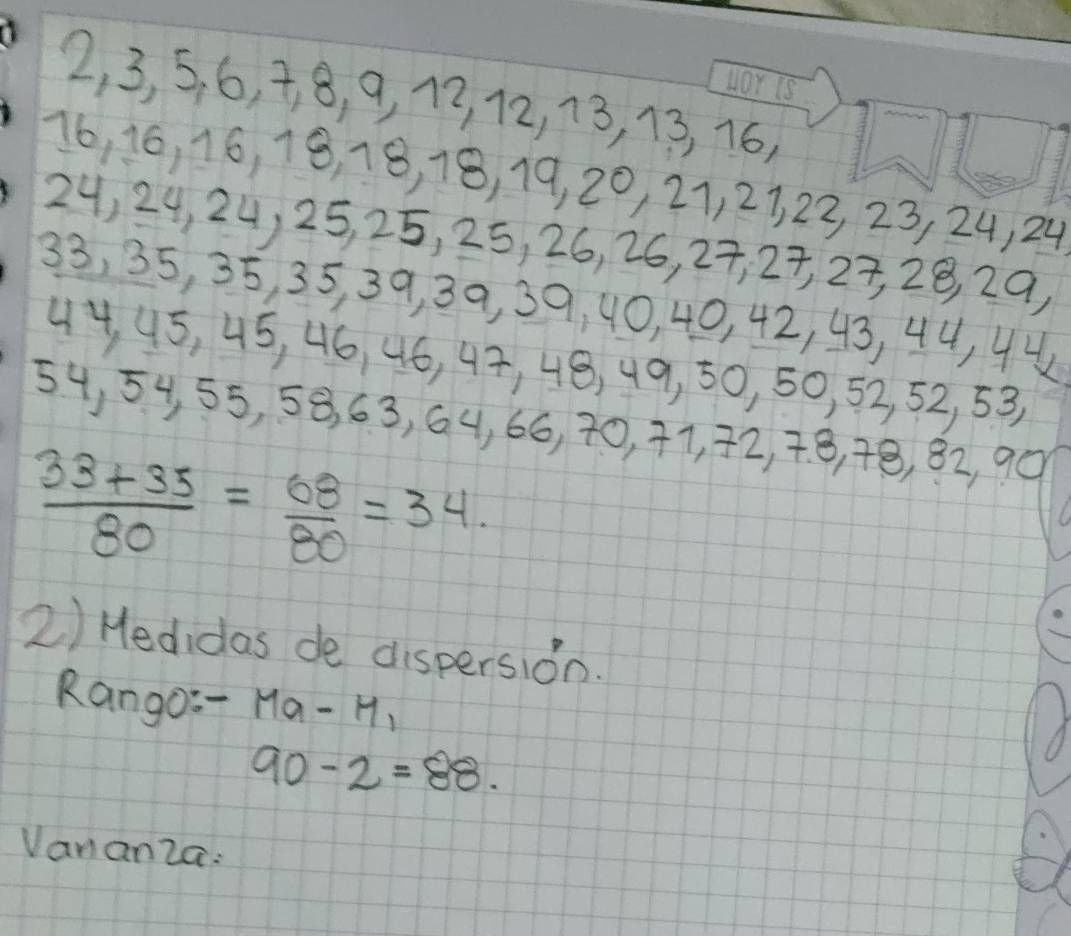 HOY IS
2, 3, 5, 6, 7, 8, 9, 12, 12, 13, 13, 16,
16, 16, 16, 18, 18, 18, 19, 20, 21, 21, 22, 23, 24, 24
24, 24, 24, 25, 25, 25, 26, 26, 27, 27, 27, 28, 29,
33, 35, 35, 35, 39, 39, 39, 40, 40, 42, 43, 44, 44,
44, 45, 45, 46, 46, 47, 48, 49, 50, 50, 52, 52, 53,
54, 54, 55, 58, 63, 64, 66, 70, 71, 72, 78, 78, 82, 90
33+35/80 = 68/80 = 34.
2) Medidas de dispersión.
Rango:- Ma - Mi
90 - 2 = 88.
Varianza: